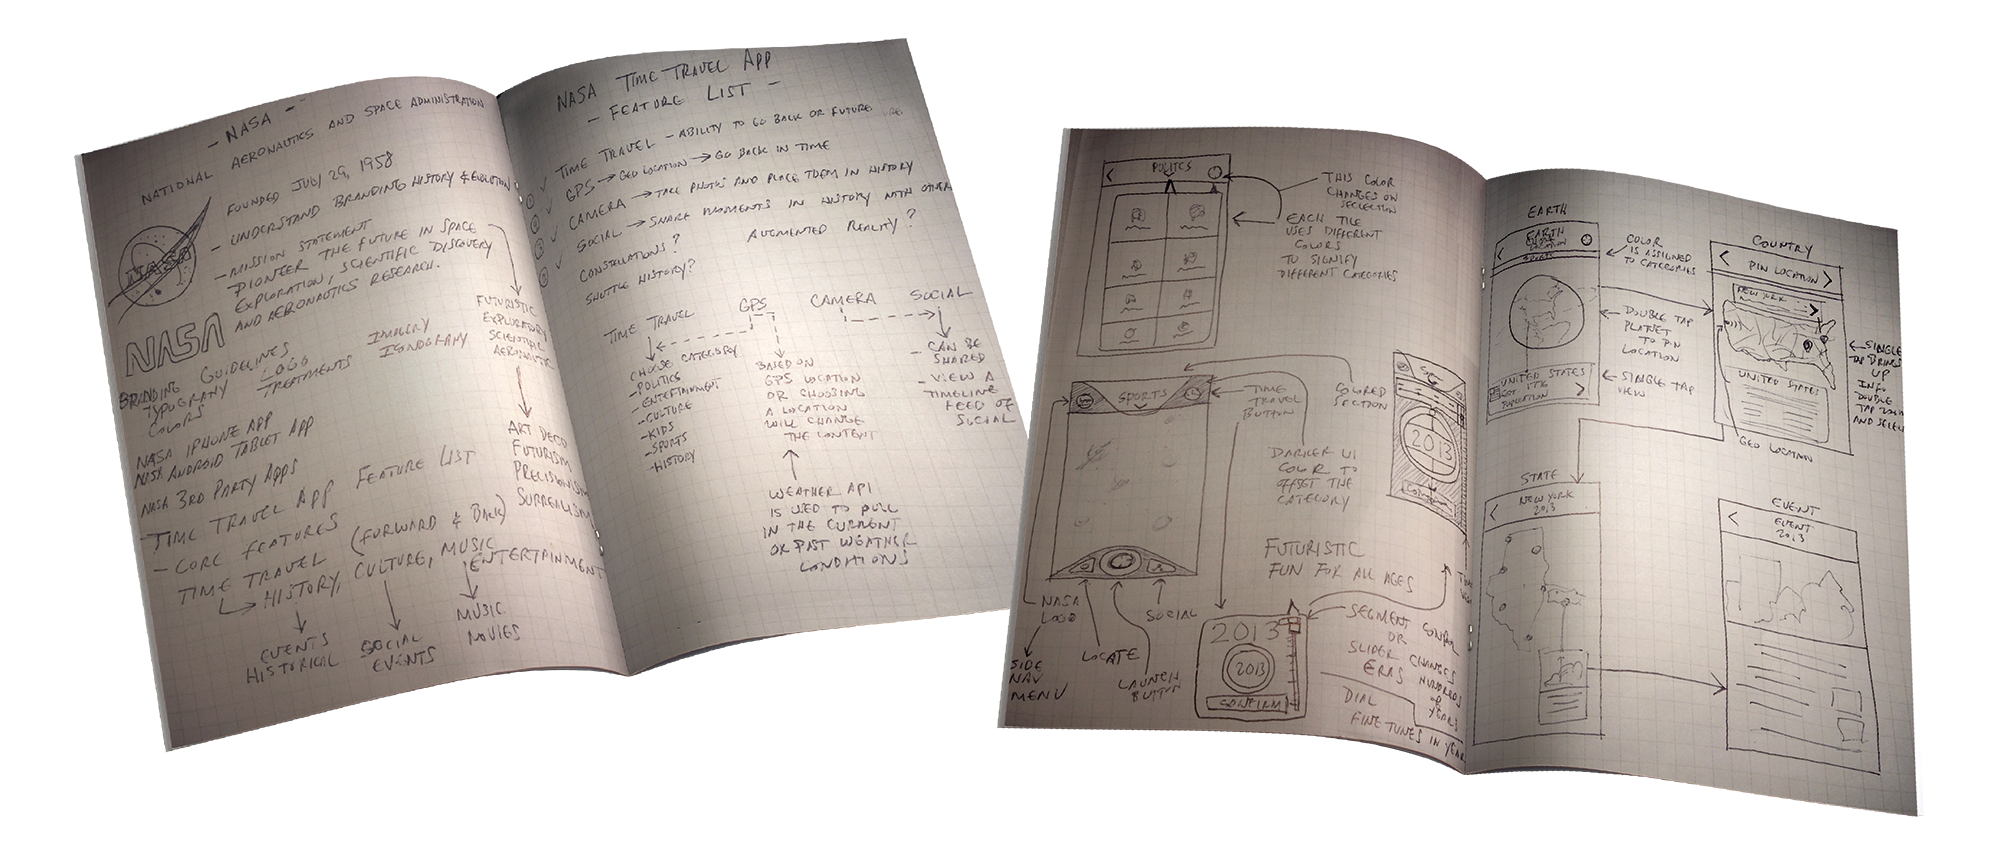 - NASA -
NATIONAL AERONAUTICS AND SPACE ADMINISTRATION
FOUNDED JULY 29, 1958
- UNDERSTAND BRANDING HISTORY & EVOLUTION
- MISSION STATEMENT
- PIONEER THE FUTURE IN SPACE
EXPLORATION, SCIENTIFIC DISCOVERY
AND AERONAUTICS RESEARCH.
NASA
NASA
FUTURISTIC
EXPLORATORY
SCIENTIFIC
AERONAUTIC
BRANDING GUIDELINES
TYPOGRAPHY
COLORS
LOGO
TREATMENTS
IMAGERY
ICONOGRAPHY
NASA IPHONE APP
NASA ANDROID TABLET APP
NASA 3RD PARTY APPS
ART DECO
FUTURISM
PRECISIONISM
SURREALISM
- TIME TRAVEL APP FEATURE LIST
- CORE FEATURES
TIME TRAVEL (FORWARD & BACK)
HISTORY, CULTURE, MUSIC
ENTERTAINMENT
EVENTS
HISTORICAL
SOCIAL
EVENTS
MUSIC
MOVIES
NASA TIME TRAVEL APP
- FEATURE LIST -
TIME TRAVEL - ABILITY TO GO BACK OR FUTURE
GPS → GEO LOCATION → GO BACK IN TIME
CAMERA → TAKE PHOTOS AND PLACE THEM IN HISTORY
SOCIAL → SHARE MOMENTS IN HISTORY WITH OTHER
CONSTELLATIONS? AUGMENTED REALITY?
SHUTTLE HISTORY?
TIME TRAVEL GPS CAMERA SOCIAL
CHOOSE CATEGORY
- POLITICS
- ENTERTAINMENT
- CULTURE
- KIDS
- SPORTS
- HISTORY
BASED ON
GPS LOCATION
OR CHOOSING
A LOCATION
WILL CHANGE
THE CONTENT
- CAN BE
SHARED
- VIEW A
TIMELINE
FEED OF
SOCIAL
WEATHER API
IS USED TO PULL
IN THE CURRENT
OR PAST WEATHER
CONDITIONS
< POLITICS
THIS COLOR
CHANGES ON
SELECTION
EACH TILE
USES DIFFERENT
COLORS
TO SIGNIFY
DIFFERENT CATEGORIES
SPORTS
TIME
TRAVEL
BUTTON
COLORED
SECTION
2013
DARKER UI
COLOR TO
OFFSET THE
CATEGORY
FUTURISTIC
FUN FOR ALL AGES
NASA
LOGO
SIDE
NAV
MENU
LOCATE
LAUNCH
BUTTON
SOCIAL
2013
2013
CONFIRM
SEGMENT CONTROL
OR
SLIDER CHANGES
ERAS HUNDREDS
OF
YEARS
DIAL
FINE TUNES IN YEAR
EARTH
< EARTH
LOCATION
COLOR
IS ASSIGNED
TO CATEGORIES
DOUBLE TAP
PLANET
TO PIN
LOCATION
UNITED STATES
EST. 1776
POPULATION
>
SINGLE TAP
VIEW
COUNTRY
< PIN LOCATION >
NEW YORK
>
UNITED STATES
GEO LOCATION
SINGLE
TAP BRINGS
UP
INFO
DOUBLE
TAP ZOOM
AND SELECT
STATE
< NEW YORK
2013
EVENT
< EVENT
2013